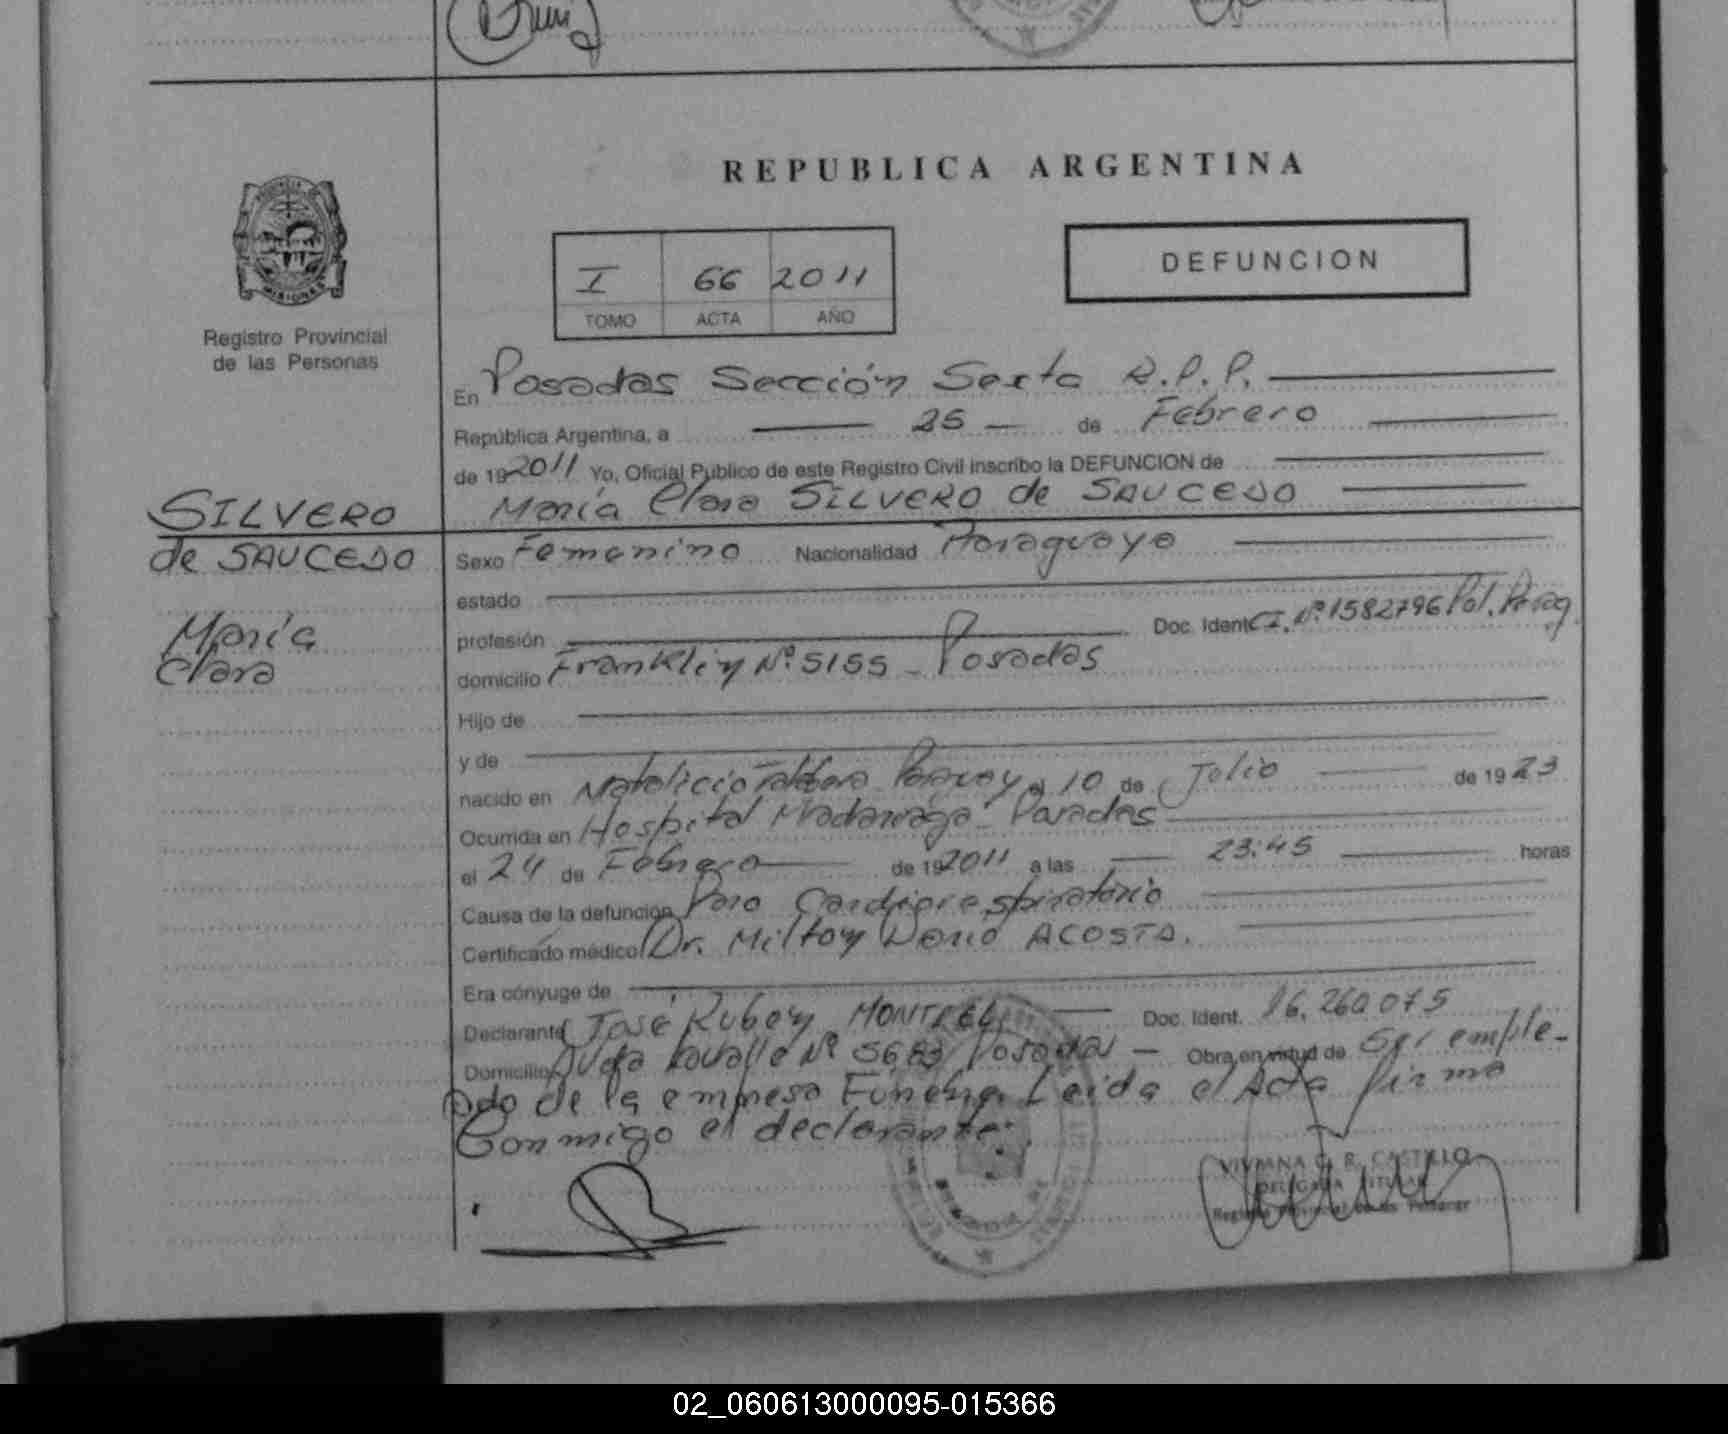 REPUBLICA ARGENTINA
MISIONES
Registro Provincial
de las Personas
I 66 2011
TOMO ACTA AÑO
DEFUNCION
En Posadas Sección Sexta R.P.P.
República Argentina, a 25 de Febrero
de 192011 Yo, Oficial Público de este Registro Civil inscribo la DEFUNCION de
María Clara SILVERO de SAUCEDO
SILVERO
de SAUCEDO
María
Clara
Sexo Femenino Nacionalidad Paraguaya
estado
profesión Doc. Ident. C.I. Nº 1582796 Pol. Parag.
domicilio Franklin Nº 5155 - Posadas
Hijo de
y de
nacido en Natalicio Paraguay el 10 de Julio de 1923
Ocurrida en Hospital Madariaga - Posadas
el 24 de Febrero de 192011 a las 23:45 horas
Causa de la defunción Paro Cardiorespiratorio
Certificado médico Dr. Milton Dario ACOSTA.
Era cónyuge de
Declarante José Ruben Doc. Ident. 16.260.075
Domicilio Avda Lavalle Nº 5683 Posadas Obra en virtud de Ser emple-
ado de la empresa Funebre. Leida el Acta firma
Conmigo el declarante.
VIVIANA G. R. CASTILLO
DELEGADA TITULAR
Registro Provincial de las Personas
02_060613000095-015366